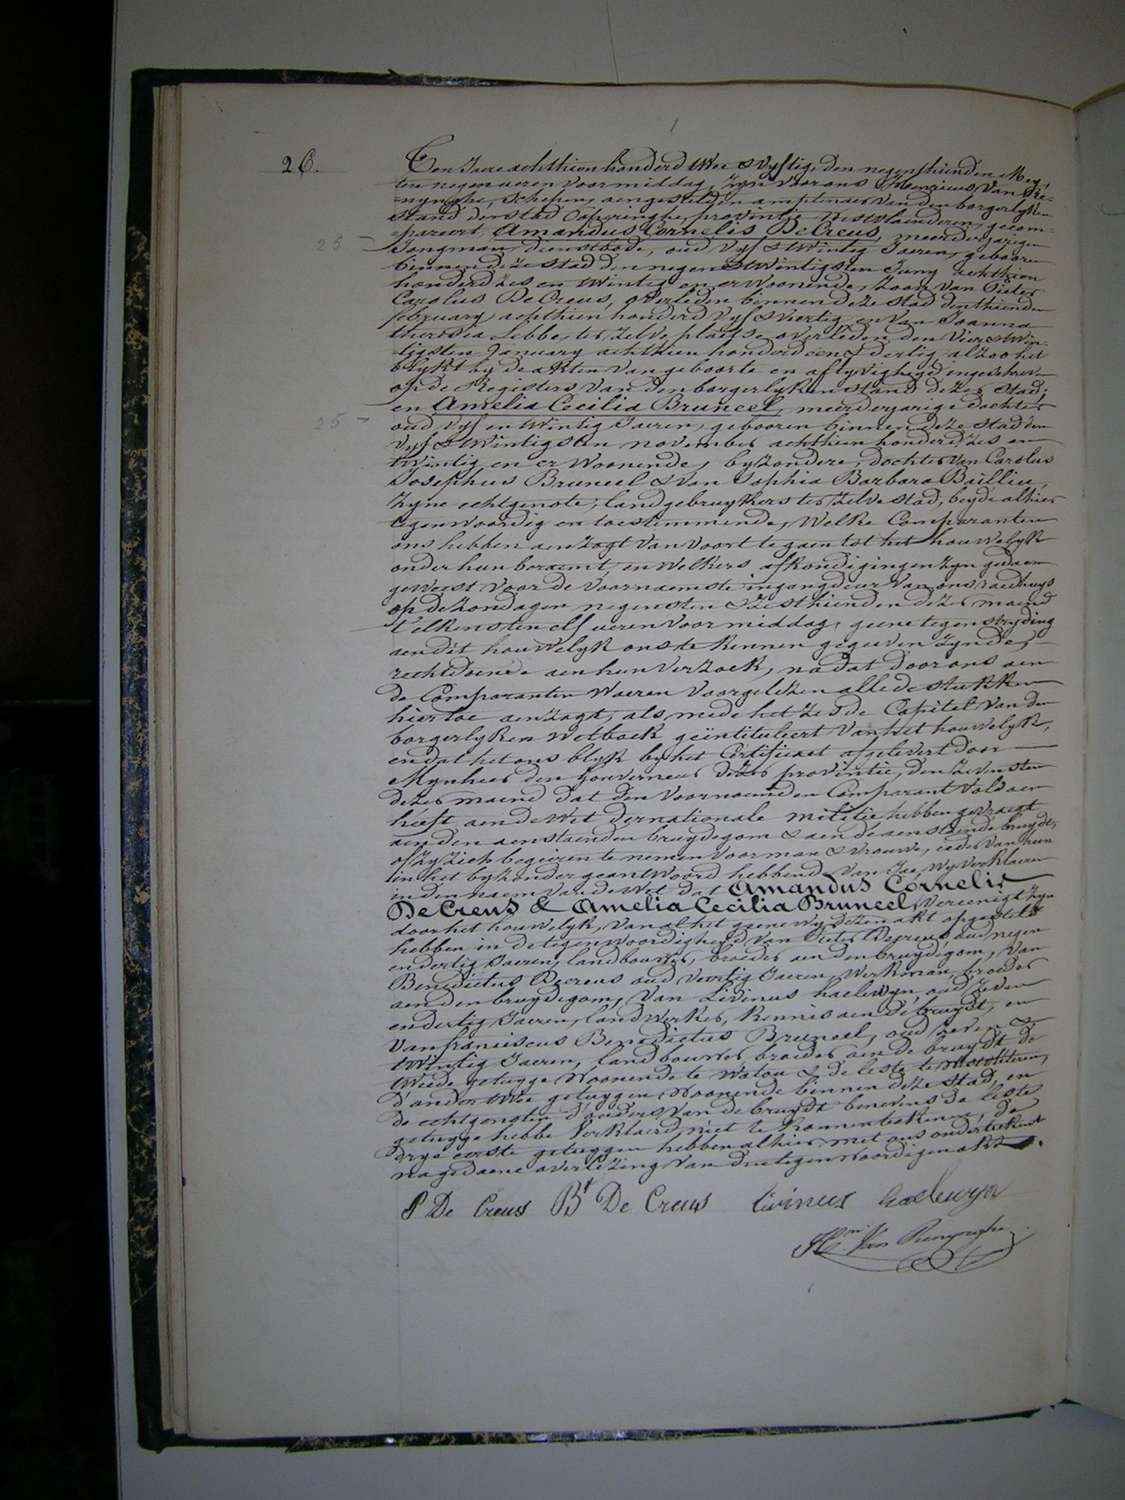 26.
Ten Jaere achthien honderd twee & vyftig, den negenthienden Mey,
ten negen ueren voormiddag, zyn voor ons Henricus Van Re-
nynghe, Schepen, aengestelden amptenaer van den borgerlyken
stand der stad Poperinghe, provintie Westvlaenderen, gecom-
pareert Amandus Cornelis DeCreus, meerderjarigen
25
Jongman, dienstbode, oud vyf & twintig Jaeren, gebooren
binnen deze stad den negen & twintigsten Juny achthien
honderd zes en twintig en er woonende, zoon van Pieter
Carolus DeCreus, overleden binnen deze stad den thienden
february achthien honderd vyf & veertig en van Joanna
theresia Lebbe, ter zelve plaetse overleden den vier & twin-
tigsten January achthien honderd een & dertig, alzoo het
blykt by de akten van geboorte en aflyvigheyd ingeschreven
op de Registers van den borgerlyken stand dezer stad;
en Amelia Cecilia Bruneel, meerderjarige dochter
25
oud vyf en twintig Jaeren, gebooren binnen deze stad den
vyf & twintigsten november achthien honderd zes en
twintig en er woonende, byzondere, dochter van Carolus
Josephus Bruneel & van Sophia Barbara Baillieu,
zyne echtgenote, landgebruykers ter zelve stad, beyde alhier
tegenwoordig en toestemmende, Welke Comparanten
ons hebben aenzogt van voort te gaen tot het houwelyk
onder hun beraemt, en welkers afkondigingen zyn gedaen
geweest voor de voornaemste ingangdeur van ons raedhuys
op de zondagen negensten & zesthienden dezer maend
telkensten elf ueren voormiddag, geene tegenstryding
aen dit houwelyk ons te kennen gegeven zynde,
rechtdoende aen hun verzoek, na dat door ons aen
de Comparanten waeren voorgelezen alle de stukken
hiertoe aenzogt, als mede het zesde Capitel van den
borgerlyken Wetboek geïntituleert Van het houwelyk,
en dat het ons blykt by het Certificaet afgelevert door
Mynheer den Gouverneur dezer provintie, den zevensten
dezer maend dat den voornoemden Comparant voldaen
heeft aen de Wet der nationale militie hebben gevraegt
aen den aenstaenden bruydegom & aen de aenstaende bruydt,
of zy zich begeiren te nemen voor man & vrouwe, ieder van hun
in het byzonder geantwoord hebbend van Jae, Wy verklaeren
in den naem van de Wet dat Amandus Cornelis
DeCreus & Amelia Cecilia Bruneel, vereenigt zyn
door het houwelyk, van al het geene wy dezen akt opgestelt
hebben in de tegenwoordigheyd van Pieter DeCreus, oud negen
en dertig Jaeren, landbouwer, broeder aen den bruydegom, van
Benedictus DeCreus oud veertig Jaeren, Werkman, broeder
aen den bruydegom, van Livinus haelewyn, oud zeven
en dertig Jaeren, landwerker, kennis aen de bruydt, en
van franciscus Benedictus Bruneel, oud zeven &
twintig Jaeren, landbouwer, broeder aen de bruydt de
tweede getuyge woonende te Watou & de leste te
d'ander twee getuygen woonende binnen deze stad, en
de echtgenoten d'ouders van de bruydt benevens de leste
getuyge hebben verklaerd niet te konnen teekenen, de
drye eerste getuygen hebben alhier met ons onderteekent
na gedaene overlezing van den tegenwoordigen akt.
P De Creus Bt De Creus Livinus haelewyn
Hri Van Renynghe